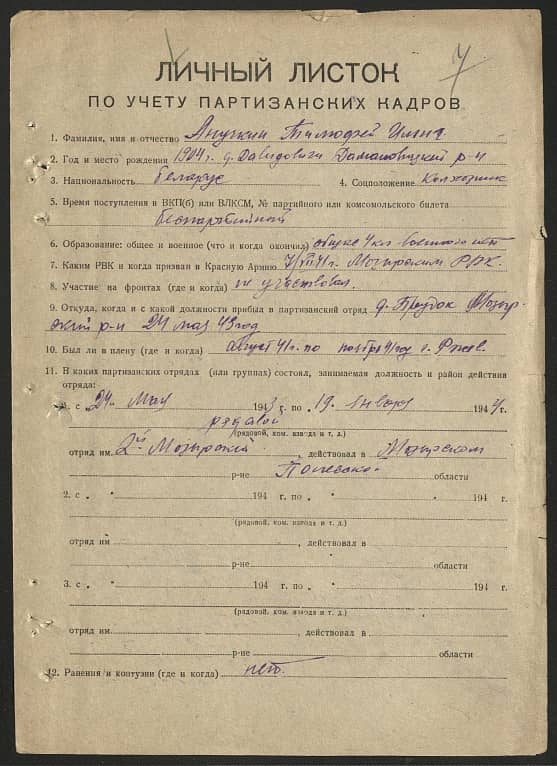 7
ЛИЧНЫЙ ЛИСТОК
ПО УЧЕТУ ПАРТИЗАНСКИХ КАДРОВ
1. Фамилия, имя и отчество Анучкин Тимофей Ильич
2. Год и место рождения 1904 г. д. Давидовичи Домановицкий р-н
3. Национальность беларус 4. Соцположение Колхозник
5. Время поступления в ВКП(б) или ВЛКСМ, № партийного или комсомольского билета
беспартийный
6. Образование: общее и военное (что и когда окончил) общее 4 кл. военного нет
7. Каким РВК и когда призван в Красную Армию 7/VII 41 г. Мозырским РВК.
8. Участие на фронтах (где и когда) не участвовал.
9. Откуда, когда и с какой должности прибыл в партизанский отряд д. Прудок Мозыр-
ский р-н 24 мая 43 год
10. Был ли в плену (где и когда) август 41 г. по ноябрь 41 году г. Ржев.
11. В каких партизанских отрядах (или группах) состоял, занимаемая должность и район действия
отряда:
1. с „24 „ Мая 1943 г. по „ 19 „ января 1944 г.
рядовой
(рядовой, ком. взвода и т. д.)
отряд им. 2й Мозырский , действовал в Мозырском
р-не Полесской области
2. с „ “ 194 г. по „ “ 194 г.
(рядовой, ком. взвода и т. д.)
отряд им , действовал в
р-не области
3. с „ “ 194 г. по „ “ 194 г.
(рядовой, ком. взвода и т. д.)
отряд им. , действовал в
р-не области
12. Ранения и контузии (где и когда) нет.